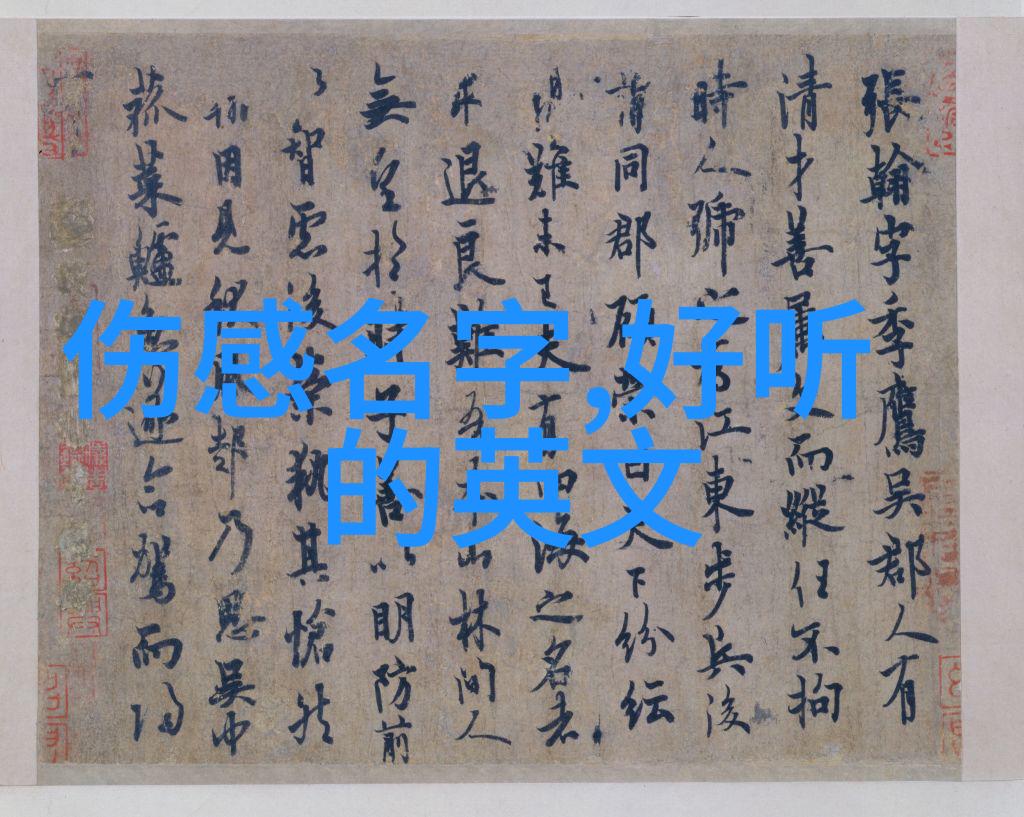 伤感名字,好听
的英文
張翰字季鷹吳郡人有
清才善屬文而縱任不拘
時人號為江東步兵後
同郡顧榮曰天下紛紜
難未已夫有四海之名者
求退良難吾本山林間人
無望於時子善以明防前
智慮後榮執其愴然
翰因見秋風起乃思吳中
菰菜鱸魚遂命駕而歸